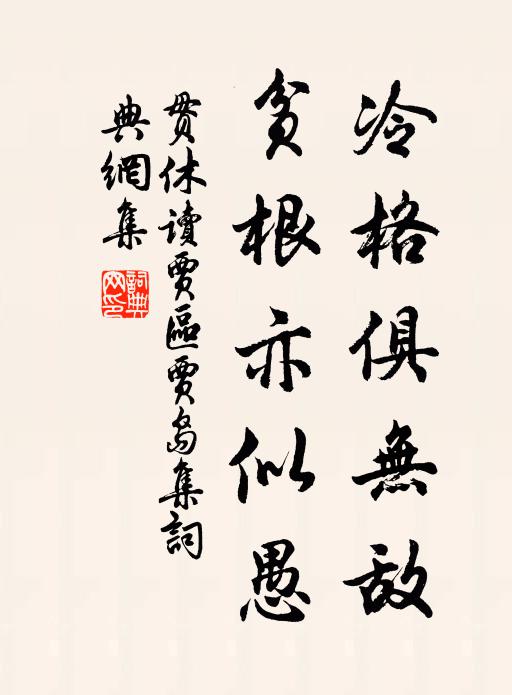 冷格俱無敵
貧根亦似愚
貫休讀賈區賈島集詞
典網集
詞典
網印